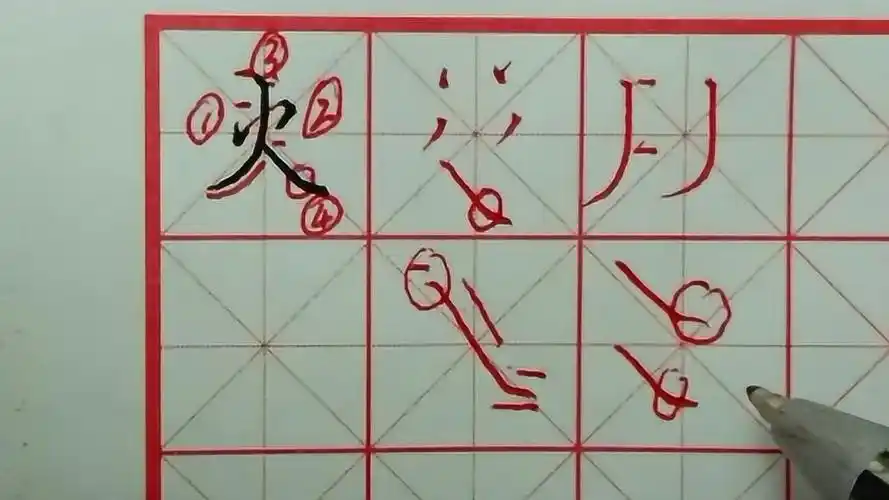 ③
① 火 ②
④